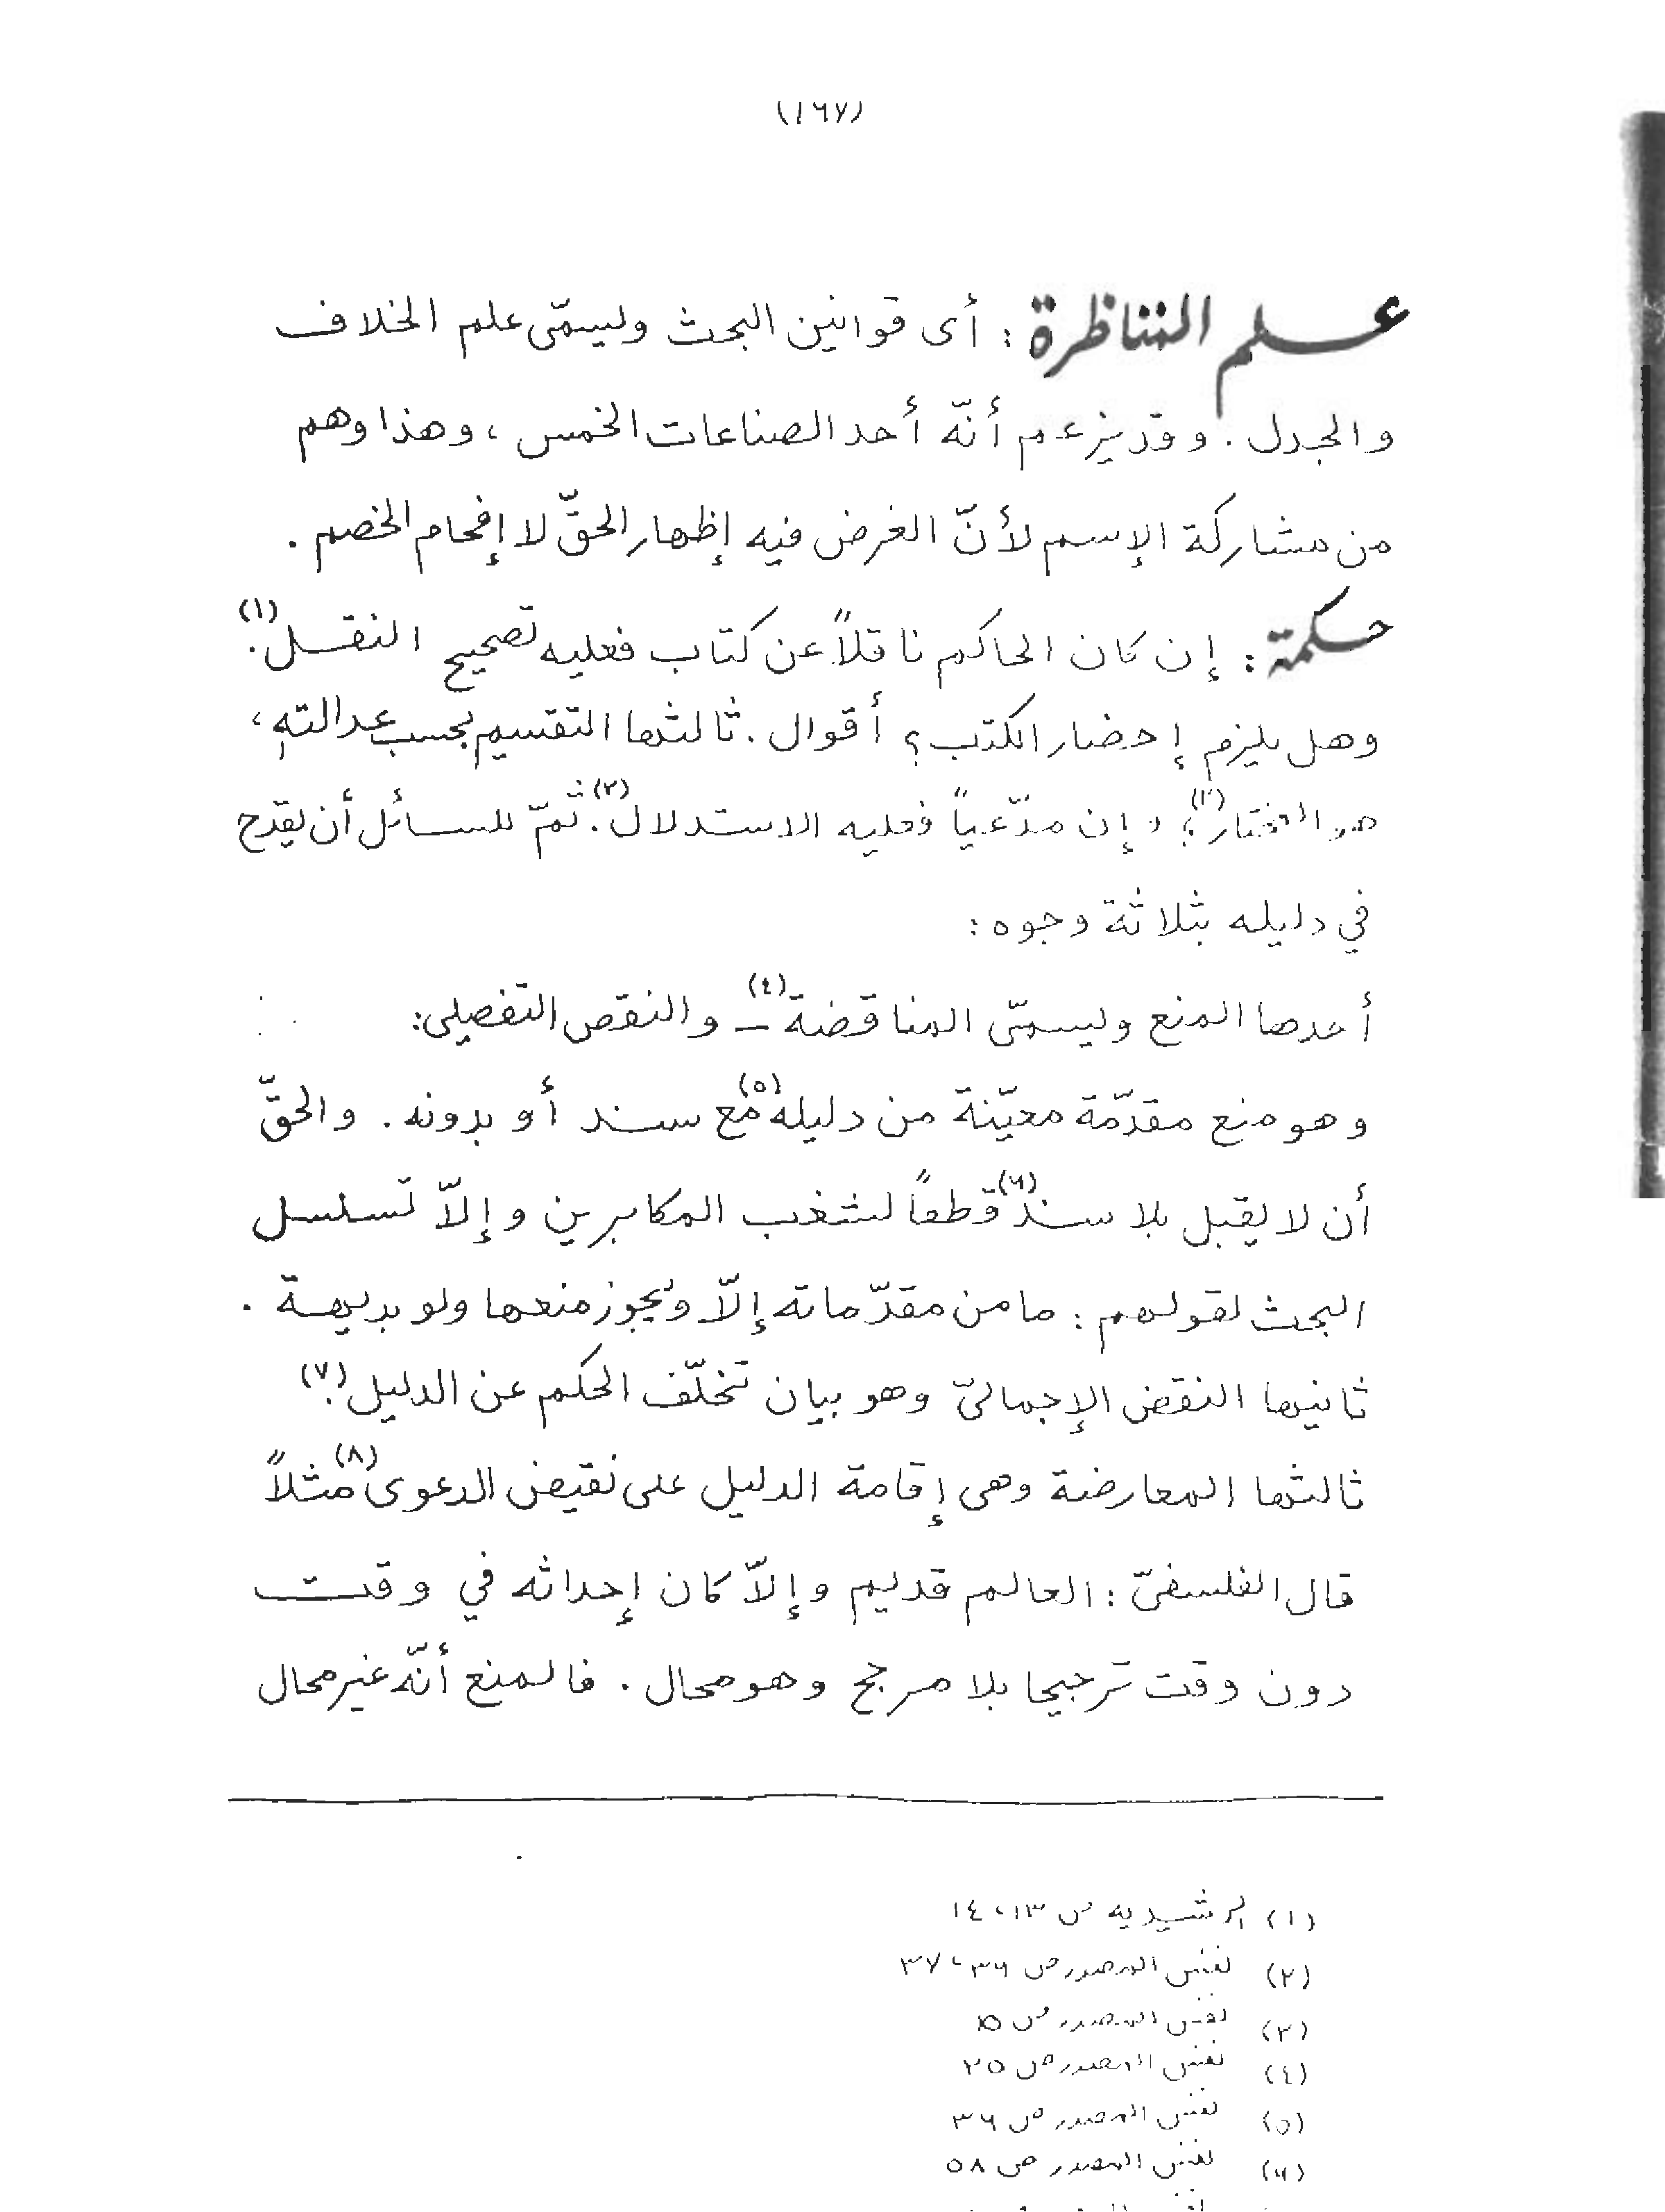 (١٦٧)
علم المناظرة : أى قوانين البحث ويسمّى علم الخلاف
والجدل . وقد يزعم أنّه أحد الصناعات الخمس ، وهذا وهم
من مشاركة الإسم لأنّ الغرض فيه إظهار الحقّ لا إفحام الخصم .
حكمة : إن كان الحاكم ناقلاً عن كتاب فعليه تصحيح النقل (١).
وهل يلزم إحضار الكتب ؟ أقوال . ثالثها التقسيم بحسب عدالته ،
هو المختار (٢) ؛ وإن مدّعياً فعليه الاستدلال (٣). ثمّ للسائل أن يقدح
في دليله بثلاثة وجوه :
أحدها المنع ويسمّى المناقضة (٤) ـ والنقض التفصيلى :
وهو منع مقدّمة معيّنة من دليله (٥) مع سند أو بدونه . والحقّ
أن لا يقبل بلا سند (٦) قطعاً لشغب المكابرين وإلاّ تسلسل
البحث لقولهم : ما من مقدّماته إلاّ ويجوز منعها ولو بديهة .
ثانيها النقض الإجماليّ وهو بيان تخلّف الحكم عن الدليل (٧).
ثالثها المعارضة وهى إقامة الدليل على نقيض الدعوى (٨) مثلاً
قال الفلسفىّ : العالم قديم وإلاّ كان إحداثه في وقت
دون وقت ترجيحا بلا مرجح وهو محال . فالمنع أنّه غير محال
(١) الرشيديه ص ١٣ ، ١٤
(٢) نفس المصدر ص ٣٦ ، ٣٧
(٣) نفس المصدر ص ١٥
(٤) نفس المصدر ص ٢٥
(٥) نفس المصدر ص ٣٦
(٦) نفس المصدر ص ٥٨